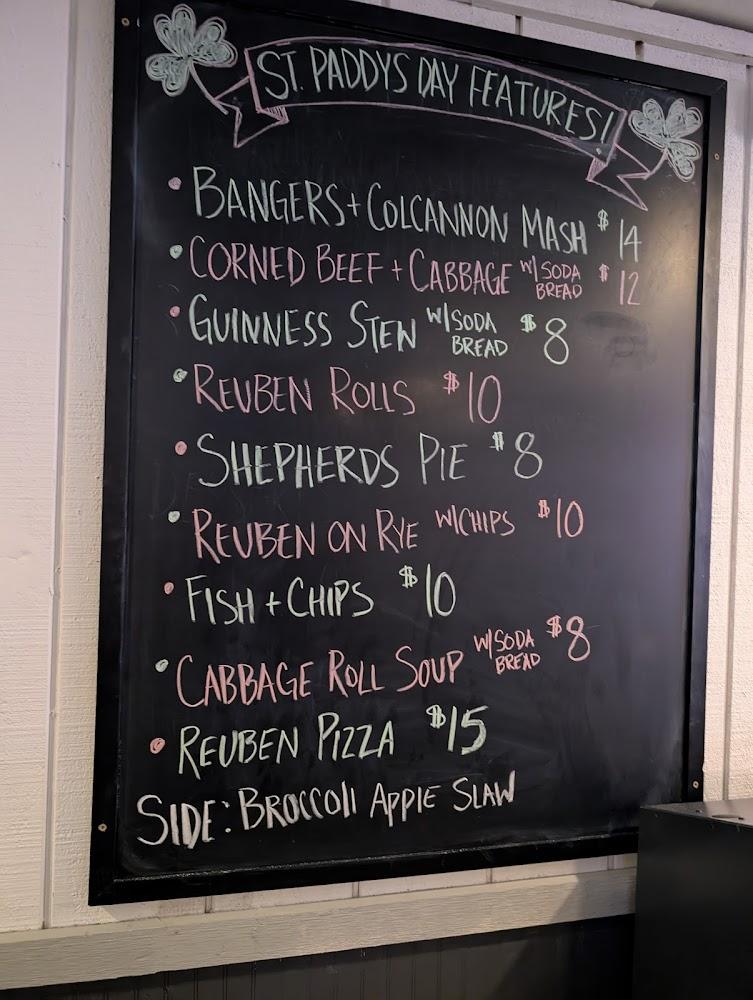 ST. PADDYS DAY FEATURES!
• BANGERS + COLCANNON MASH $14
• CORNED BEEF + CABBAGE W/ SODA BREAD $12
• GUINNESS STEW W/ SODA BREAD $8
• REUBEN ROLLS $10
• SHEPHERDS PIE $8
• REUBEN ON RYE W/CHIPS $10
• FISH + CHIPS $10
• CABBAGE ROLL SOUP W/ SODA BREAD $8
• REUBEN PIZZA $15
SIDE: BROCCOLI APPLE SLAW